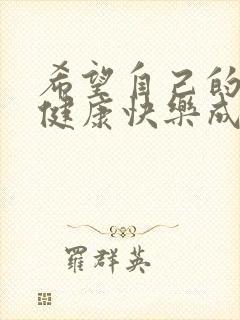 希望自己的
健康快樂成
羅群英